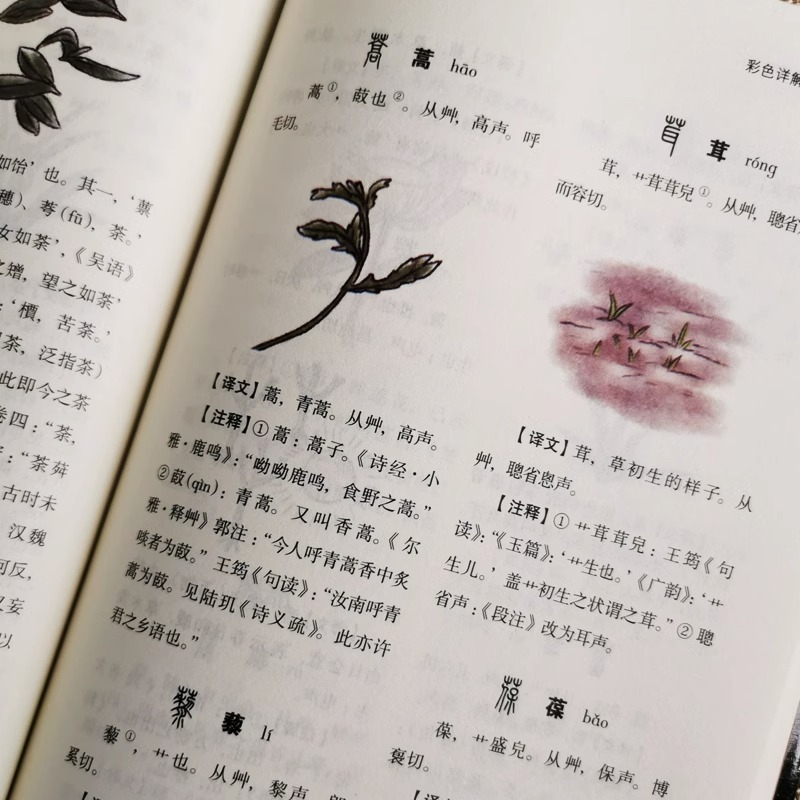 如饴’也。其一，‘蔈
穗)、荂(fū)，荼。’
女如荼’，《吴语》
之矰，望之如荼’
：‘槚，苦荼。’
荼，泛指茶)
此即今之茶
卷四：“荼，
：“荼荈
古时未
汉魏
何反，
又妄
以
彩色详解
蒿 蒿 hāo
蒿①，菣也②。从艸，高声。呼
毛切。
【译文】蒿，青蒿。从艸，高声。
【注释】①蒿：蒿子。《诗经·小
雅·鹿鸣》：“呦呦鹿鸣，食野之蒿。”
②菣(qìn)：青蒿。又叫香蒿。《尔
雅·释艸》郭注：“今人呼青蒿香中炙
啖者为菣。”王筠《句读》：“汝南呼青
蒿为菣。见陆玑《诗义疏》。此亦许
君之乡语也。”
藜 藜 lí
藜①，艹也。从艸，黎声。郎
奚切。
茸 茸 róng
茸，艹茸茸皃①。从艸，聰省
而容切。
【译文】茸，草初生的样子。从
艸，聰省悤声。
【注释】①艹茸茸皃：王筠《句
读》：“《玉篇》：‘艹生也。’《广韵》：‘艹
生儿。’盖艹初生之状谓之茸。”②聰
省声：《段注》改为耳声。
葆 葆 bǎo
葆，艹盛皃。从艸，保声。博
袌切。